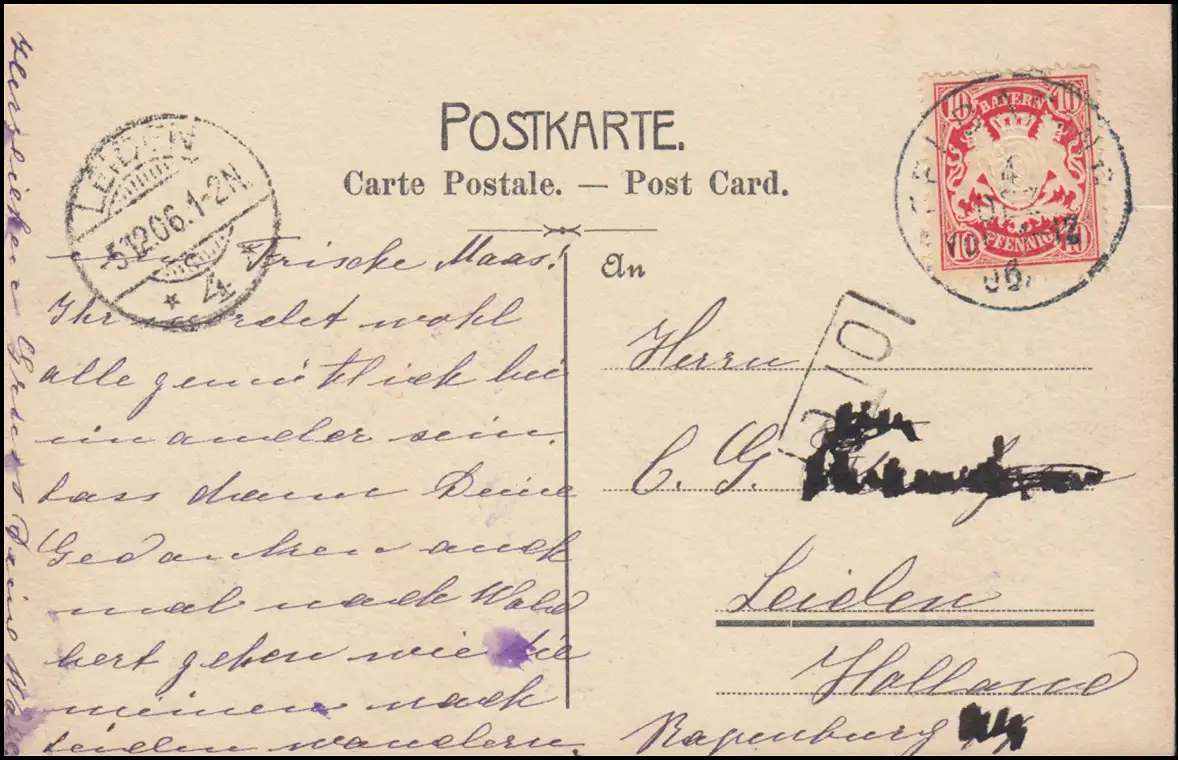 POSTKARTE.
Carte Postale. — Post Card.
LEIDEN
5.12.06.1-2N
* 4 *
BAYERN
10 10
10 PFENNIG 10
4
DEZ
10 12
06
101
Frische Maas!
Ihr werdet wohl
alle gemütlich bei
einander sein.
Lass dann Deine
Gedanken auch
mal nach Wald
bert gehen wie die
meinen nach
Leiden wandern.
Herzliche Grüsse Deine
An
Herrn
C. G.
Leiden
Holland
Rapenburg